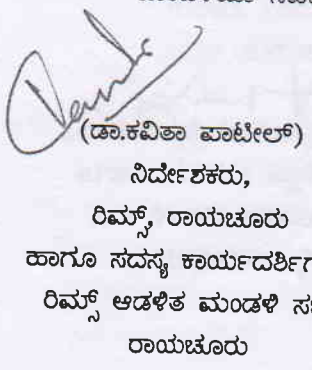 (ಡಾ.ಕವಿತಾ ಪಾಟೀಲ್)
ನಿರ್ದೇಶಕರು,
ರಿಮ್ಸ್, ರಾಯಚೂರು
ಹಾಗೂ ಸದಸ್ಯ ಕಾರ್ಯದರ್ಶಿಗ
ರಿಮ್ಸ್ ಆಡಳಿತ ಮಂಡಳಿ ಸ
ರಾಯಚೂರು